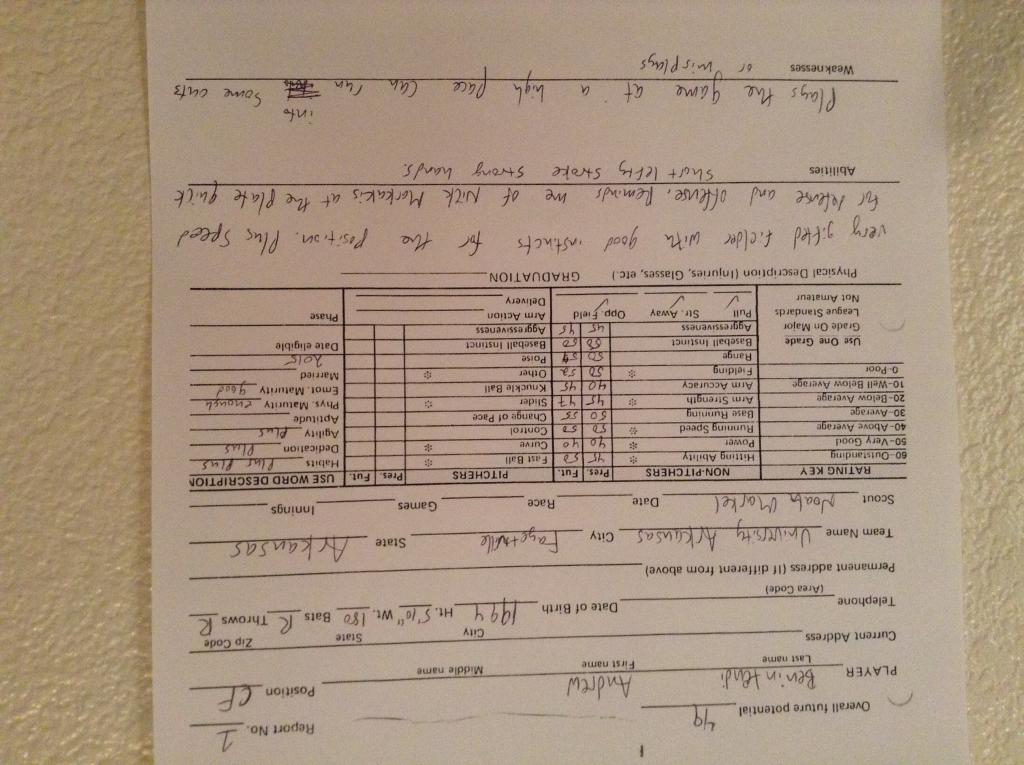 Report No. 1
Overall future potential 49
PLAYER Benintendi Andrew Position CF
Last name First name Middle name
Current Address
City State Zip Code
Telephone Date of Birth 1994 Ht. 5'10" Wt. 180 Bats R Throws R
(Area Code)
Permanent address (If different from above)
Team Name University Arkansas City Fayetville State Arkansas
Scout Noah Markel Date Race Games Innings
RATING KEY NON-PITCHERS Pres. Fut. PITCHERS Pres. Fut. USE WORD DESCRIPTION
60-Outstanding Hitting Ability * 45 50 Fast Ball * Habits Plus Plus
50-Very Good Power * 40 40 Curve * Dedication Plus
40-Above Average Running Speed * 50 50 Control Agility Plus
30-Average Base Running 50 55 Change of Pace Aptitude
20-Below Average Arm Strength * 45 47 Slider * Phys. Maturity enough
10-Well Below Average Arm Accuracy 40 45 Knuckle Ball Emot. Maturity good
0-Poor Fielding * 50 52 Other * Married
Range 50 Poise 2015
Use One Grade Baseball Instinct 50 50 Baseball Instinct Date eligible
Grade On Major Aggressiveness 45 45 Aggressiveness
League Standards Pull ✓ Str. Away ✓ Opp. Field ✓ Arm Action Phase
Not Amateur Delivery
Physical Description (Injuries, Glasses, etc.) GRADUATION
very gifted fielder with good instincts for the position. Plus Speed
for defense and offense. Reminds me of Nick Markakis at the plate quick
Abilities short lefty stroke strong hands.
Plays the game at a high pace can run into some outs
Weaknesses or misplays